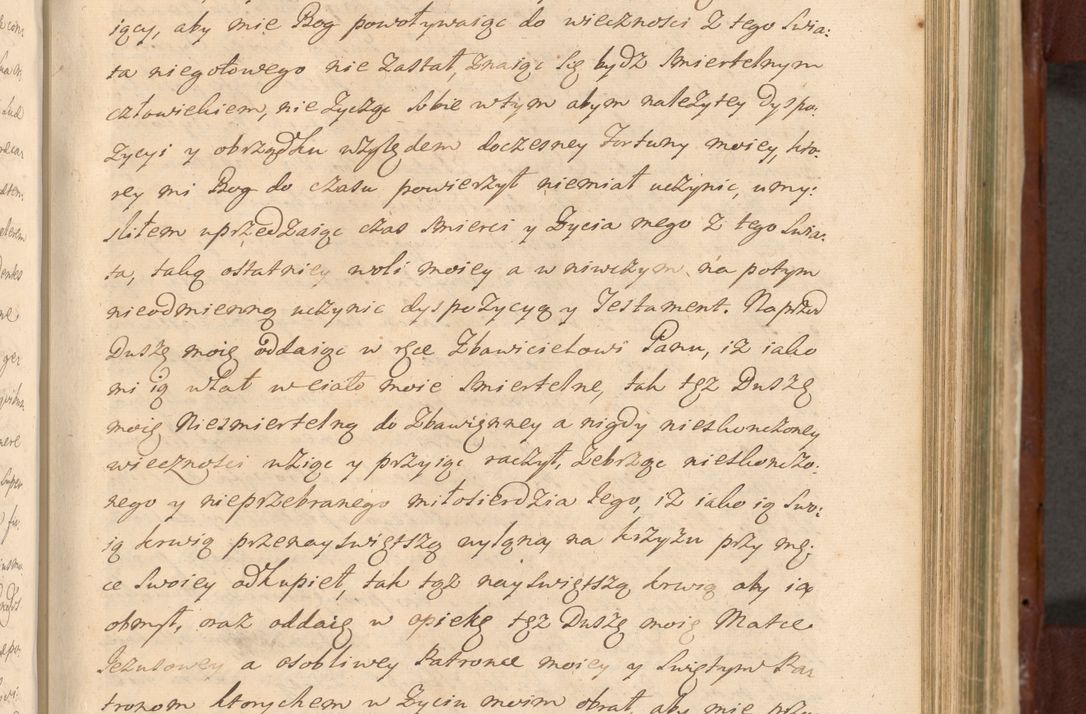 iący, aby mię Bog powoływaiąc do wieczności z tego świa:
ta niegotowego nie zastał, znaiąc się bydź śmiertelnym
człowiekiem, nie życząc sobie w tym abym należytey dyspo:
zycyi y obrządku względem doczesney Fortuny moiey, kto:
rey mi Bog do czasu powierzył niemiał uczynić, umy:
śliłem uprzedzaiąc czas śmierci y Życia mego z tego świa:
ta, taką ostatniey woli moiey a w niwczym na potym
nieodmienną uczynić dyspozycyą y Testament. Naprzod
Duszę moię oddaiąc w ręce Zbawicielowi Panu, iż iako
mi ią wlał w ciało moie śmiertelne, tak też Duszę
moię Nieśmiertelną do zbawienney a nigdy nieskonczoney
wieczności wziąc y przyiąc raczył, żebrząc nieskonczo:
nego y nieprzebranego miłosierdzia Jego, iż iako ią swo:
ią krwią przenayświętszą wylaną na krzyżu przy mę:
ce swoiey odkupieł, tak też nayświętszą krwią aby ią
obmył, oraz oddaię w opiekę też Duszę moię Matce
Jezusowey a osobliwey Patronce moiey y Świętym Pa
tronom ktorychem w Życiu moim obrał, aby mie przy